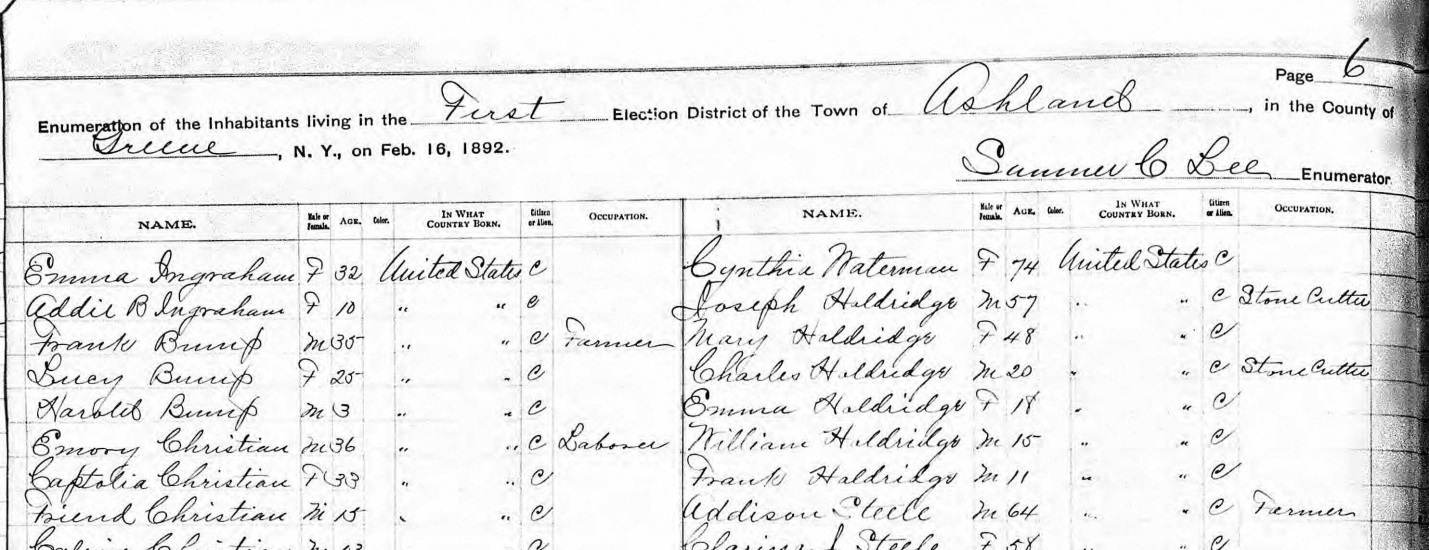 Page 6
Enumeration of the Inhabitants living in the First Election District of the Town of Ashland, in the County of
Greene, N. Y., on Feb. 16, 1892.
Sumner C Lee Enumerator
NAME. Male or Female. AGE. Color. IN WHAT COUNTRY BORN. Citizen or Alien. OCCUPATION. NAME. Male or Female. AGE. Color. IN WHAT COUNTRY BORN. Citizen or Alien. OCCUPATION.
Emma Ingraham F 32 United States C Cynthia Waterman F 74 United States C
Addie B Ingraham F 10 " " C Joseph Holdridge M 57 " " C Stone Cutter
Frank Bump M 35 " " C Farmer Mary Holdridge F 48 " " C
Lucy Bump F 25 " " C Charles Holdridge M 20 " " C Stone Cutter
Harold Bump M 3 " " C Emma Holdridge F 18 " " C
Emory Christian M 36 " " C Laborer William Holdridge M 15 " " C
Captolia Christian F 33 " " C Frank Holdridge M 11 " " C
Friend Christian M 15 " " C Addison Steele M 64 " " C Farmer
Christian M Steele F 58 C